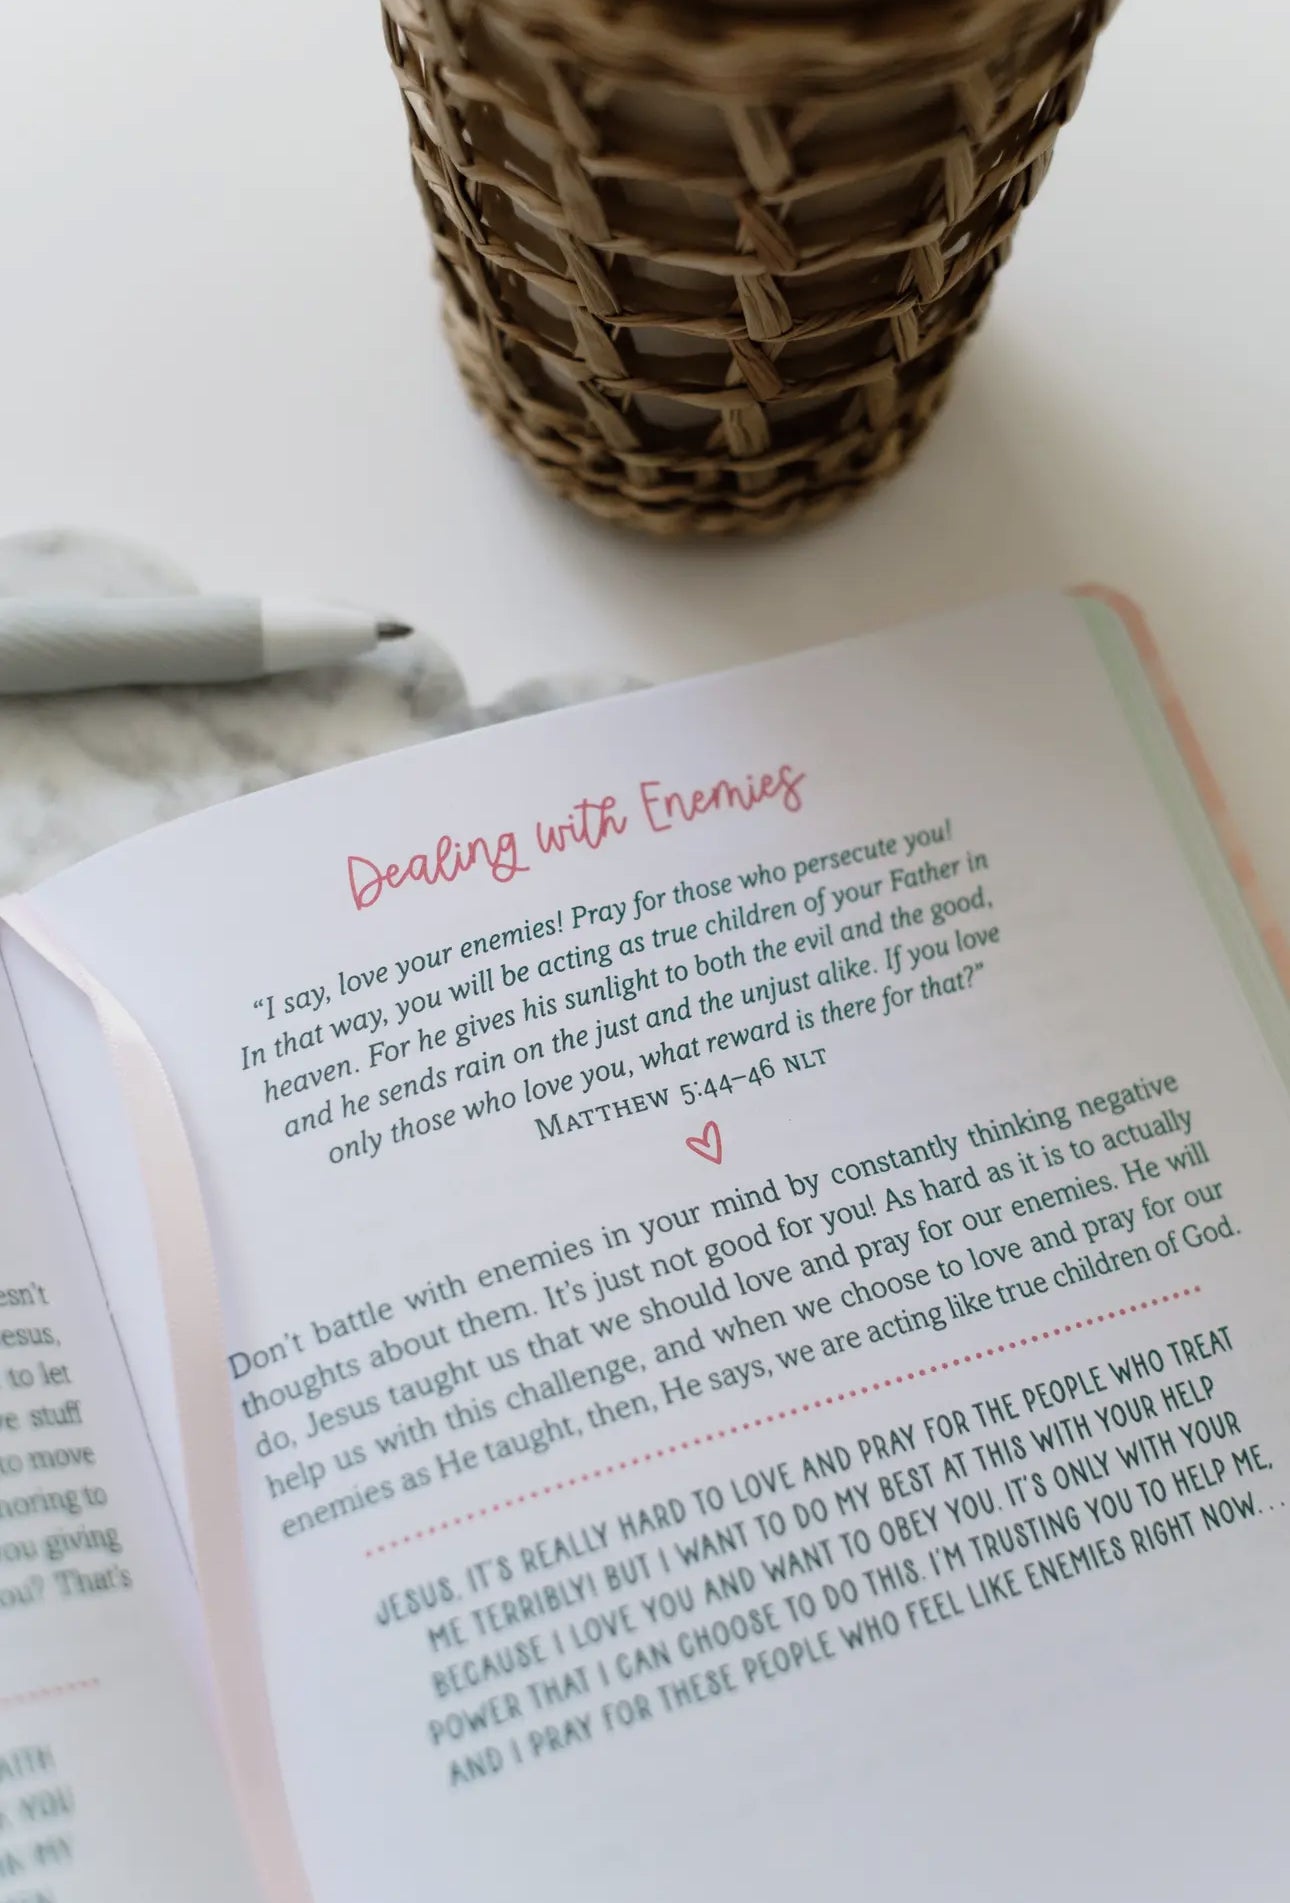 Dealing with Enemies
“I say, love your enemies! Pray for those who persecute you!
In that way, you will be acting as true children of your Father in
heaven. For he gives his sunlight to both the evil and the good,
and he sends rain on the just and the unjust alike. If you love
only those who love you, what reward is there for that?”
MATTHEW 5:44–46 NLT
Don’t battle with enemies in your mind by constantly thinking negative
thoughts about them. It’s just not good for you! As hard as it is to actually
do, Jesus taught us that we should love and pray for our enemies. He will
help us with this challenge, and when we choose to love and pray for our
enemies as He taught, then, He says, we are acting like true children of God.
JESUS, IT’S REALLY HARD TO LOVE AND PRAY FOR THE PEOPLE WHO TREAT
ME TERRIBLY! BUT I WANT TO DO MY BEST AT THIS WITH YOUR HELP
BECAUSE I LOVE YOU AND WANT TO OBEY YOU. IT’S ONLY WITH YOUR
POWER THAT I CAN CHOOSE TO DO THIS. I’M TRUSTING YOU TO HELP ME,
AND I PRAY FOR THESE PEOPLE WHO FEEL LIKE ENEMIES RIGHT NOW. . .
to let
stuff
to move
giving
That’s
YOU
MY